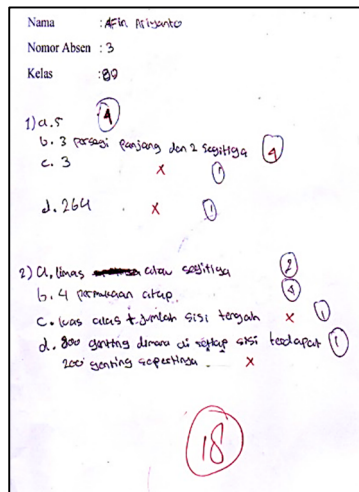 Nama : Afin Ariyanto
Nomor Absen : 3
Kelas : 89
1) a. 5 4
b. 3 persegi panjang dan 2 segitiga 4
c. 3 x 1
d. 264 x 1
2) a. limas atau segitiga 2
b. 4 permukaan atap. 4
c. luas alas + jumlah sisi tengah x 1
d. 800 genting dimana di setiap sisi terdapat 1
200 genting sepertinya. x
18